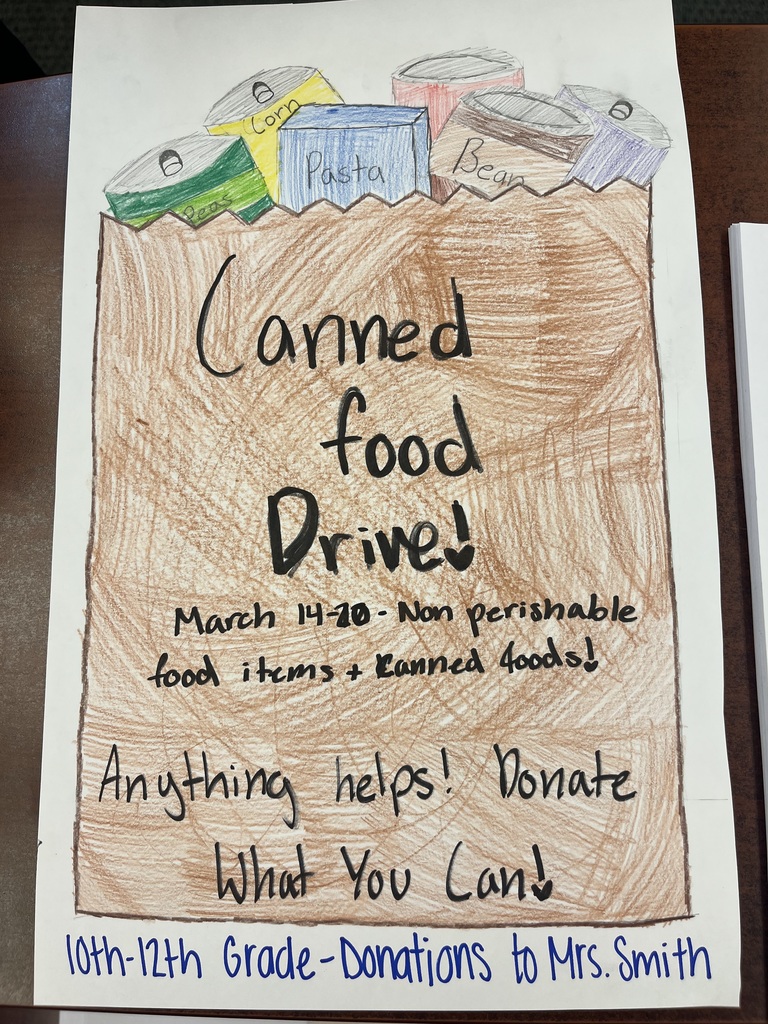 Corn
Pasta
Bean
Peas
Canned
food
Drive!
March 14-20 - Non perishable
food items + Canned foods!
Anything helps! Donate
What You Can!
10th-12th Grade-Donations to Mrs. Smith